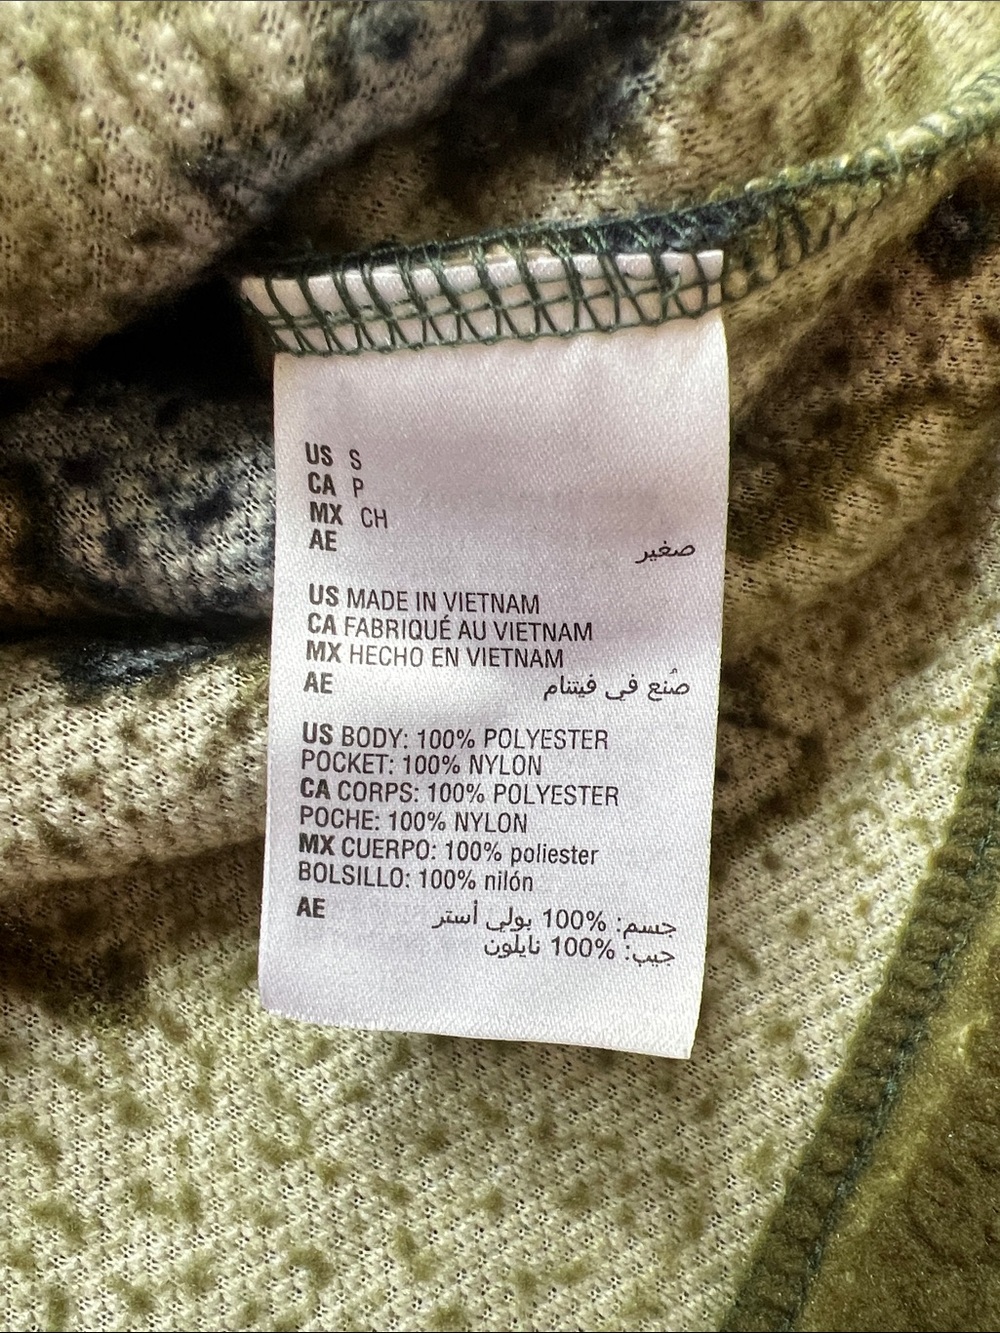 US S
CA P
MX CH
AE صغير
US MADE IN VIETNAM
CA FABRIQUÉ AU VIETNAM
MX HECHO EN VIETNAM
AE صُنع في فيتنام
US BODY: 100% POLYESTER
POCKET: 100% NYLON
CA CORPS: 100% POLYESTER
POCHE: 100% NYLON
MX CUERPO: 100% poliester
BOLSILLO: 100% nilón
AE جسم: 100% بولي أستر
جيب: 100% نايلون